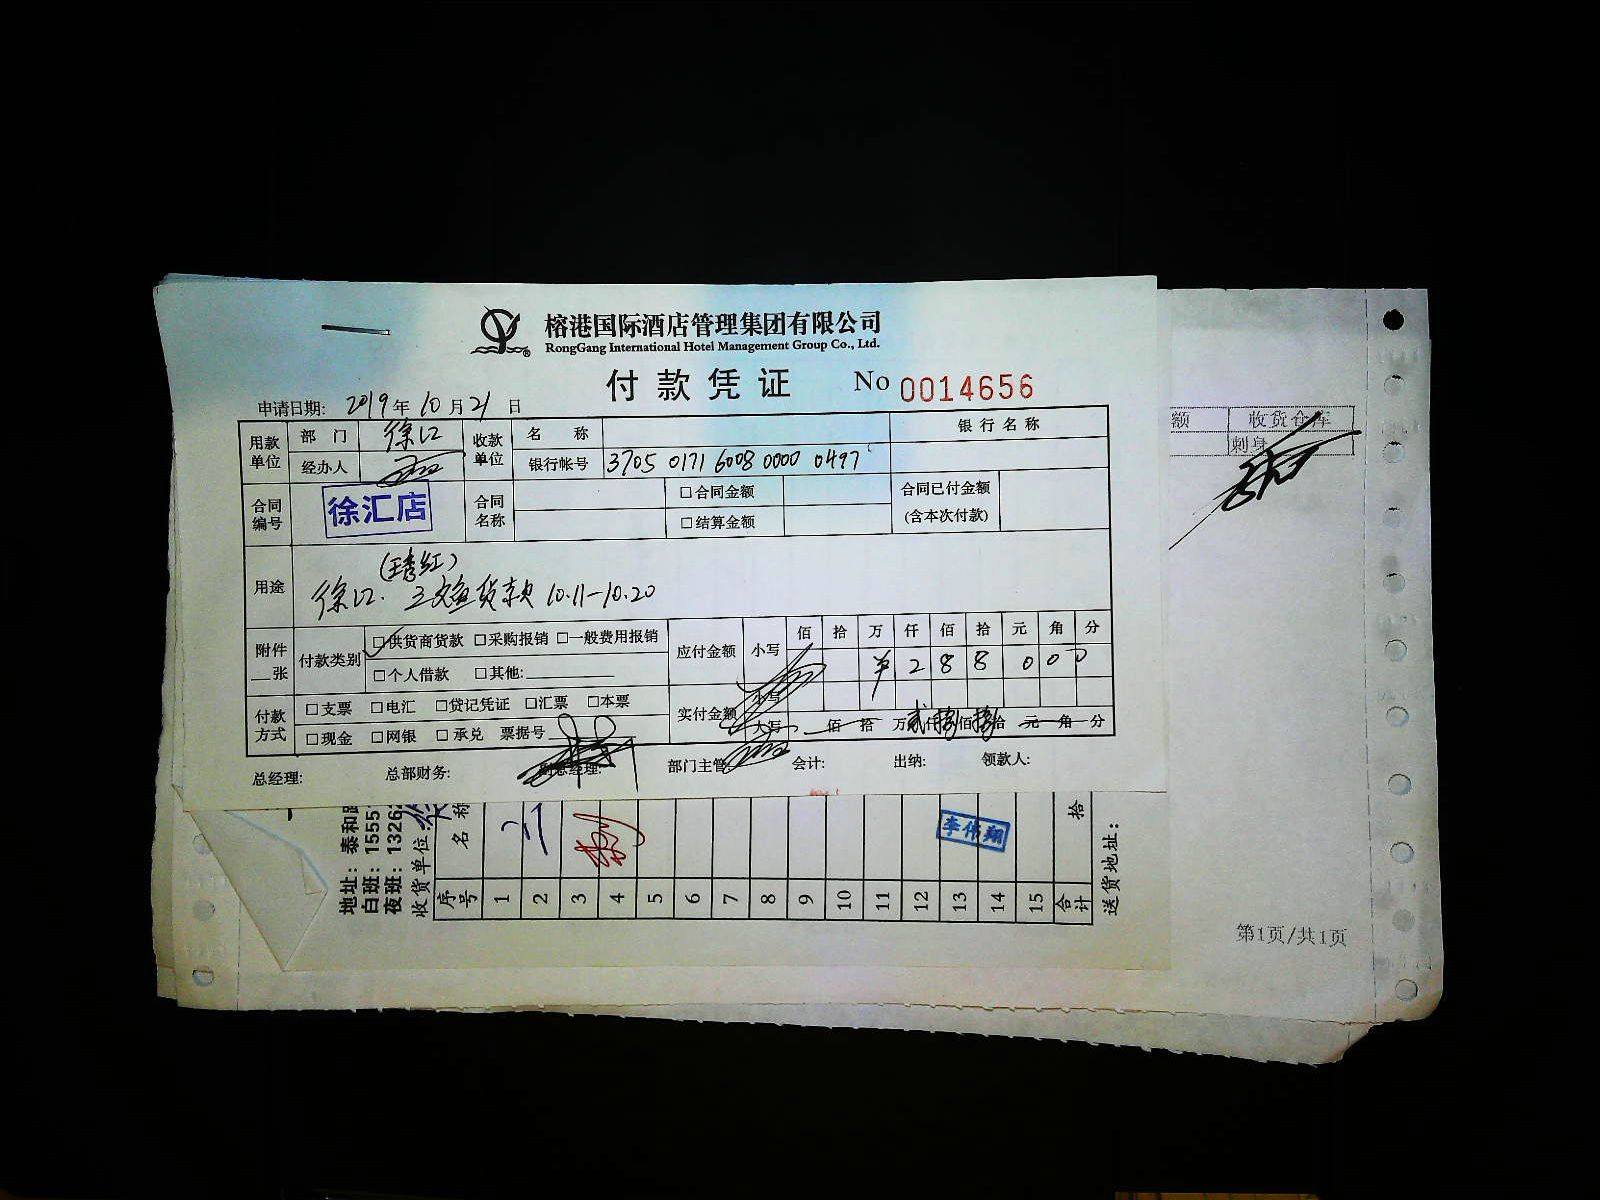 榕港国际酒店管理集团有限公司
RongGang International Hotel Management Group Co., Ltd.
付款凭证 No 0014656
申请日期: 2019年10月21日
用款单位 部门 徐汇 收款单位 名称 银行名称
经办人 银行帐号 3705 0171 6008 0000 0497
合同编号 徐汇店 合同名称 □合同金额 合同已付金额
□结算金额 (含本次付款)
用途 (王青红)
徐汇. 三文鱼货款 10.11-10.20
附件__张 付款类别 □供货商货款 □采购报销 □一般费用报销 应付金额 小写 佰 拾 万 仟 佰 拾 元 角 分
□个人借款 □其他: ¥ 2 8 8 0 0 0
付款方式 □支票 □电汇 □贷记凭证 □汇票 □本票 实付金额 小写
□现金 □网银 □承兑 票据号 大写 佰 拾 万 贰仟捌佰捌拾 元 角 分
总经理: 总部财务: 副总经理: 部门主管 会计: 出纳: 领款人:
额 收货仓库
刺身
第1页/共1页
地址: 泰和路
白班: 1555
夜班: 1326
收货单位:
序号 名称
1
2
3
4
5
6
7
8
9
10
11
12
13
14
15
合计 拾
送货地址:
李伟翔